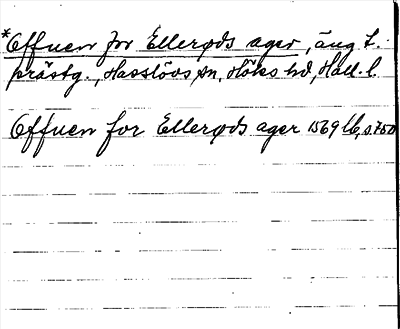 *Offuen for Ellerøds ager, äng t.
prästg., Hasslövs sn, Höks hd, Hall. l.
Offuen for Ellerøds ager 1569 lb, s. 750